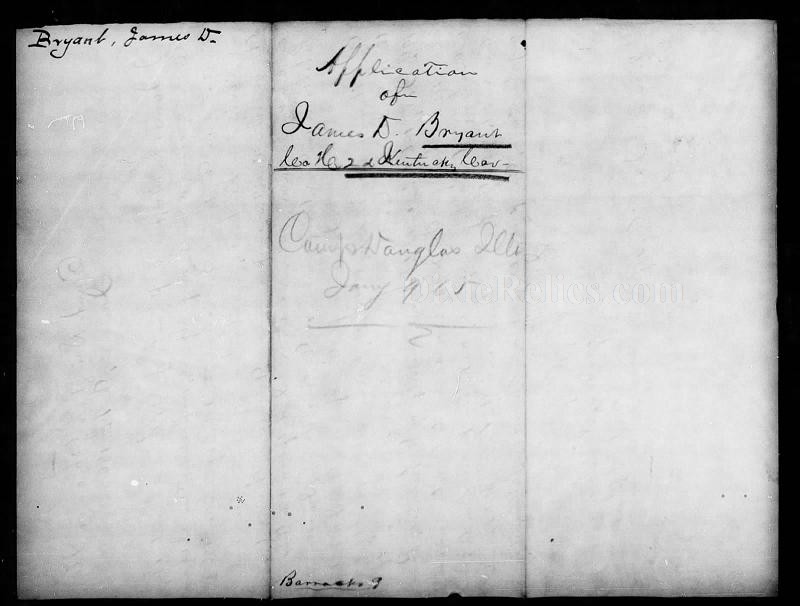 Bryant, James D.
Application
of
James D. Bryant
Co H 2d Kentucky Cav
Camp Douglas Ills
Jany 9 65
DixieRelics.com
Barracks 9